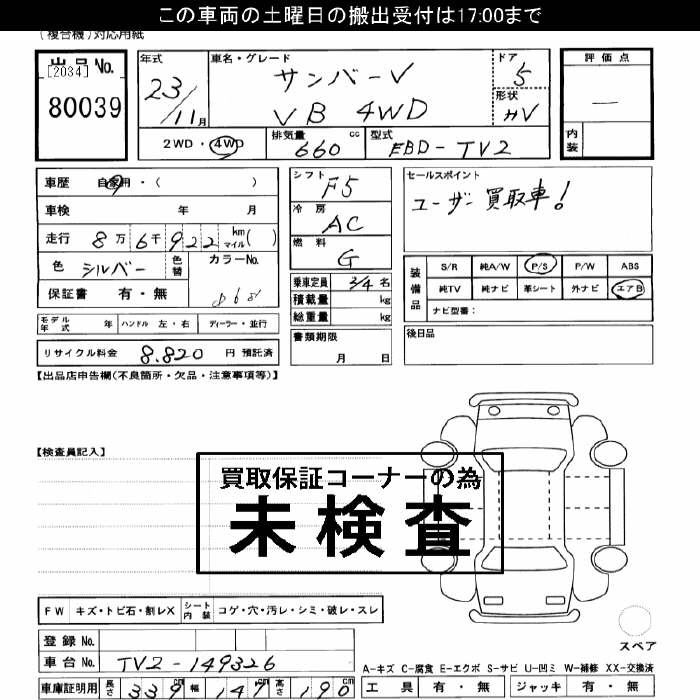 この車両の土曜日の搬出受付は17:00まで
(複合機)対応用紙
出品 No.
[2034]
80039
年式
23/11月
車名・グレード
サンバーV
VB 4WD
ドア
5
形状
バV
評価点
—
内装
2WD・4WD
排気量
660 cc
型式
EBD-TV2
車歴 自家用・( )
車検 年 月
走行 8万6千922 km マイル( )
色 シルバー 色替 カラーNo.
保証書 有・無
シフト
F5
冷房
AC
燃料
G
乗車定員 2/4名
積載量 kg
総重量 kg
書類期限
月 日
セールスポイント
ユーザー買取車!
装備品
S/R 純A/W P/S P/W ABS
純TV 純ナビ 革シート 外ナビ エアB
ナビ型番:
後日品
モデル年式 年 ハンドル 左・右 ディーラー・並行
リサイクル料金 8.820 円 預託済
【出品店申告欄(不良箇所・欠品・注意事項等)】
【検査員記入】
買取保証コーナーの為
未検査
FW キズ・トビ石・割レX シート内装 コゲ・穴・汚レ・シミ・破レ・スレ
登録 No.
車台 No. TV2-149326
車庫証明用 長さ 339cm 幅 147cm 高さ 190cm
スペア
A-キズ C-腐食 E-エクボ S-サビ U-凹ミ W-補修 XX-交換済
工具 有・無 ジャッキ 有・無